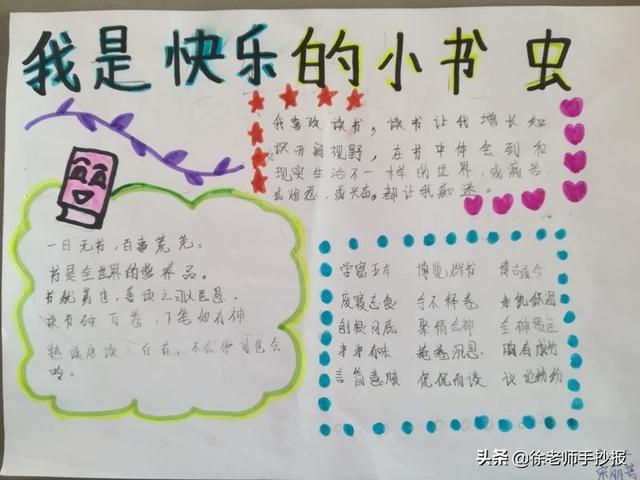 我是快乐的小书虫
我喜欢读书，读书让我增长知
识开阔视野，在书中体会到和
现实生活不一样的世界，或痛苦，
或难忘，或兴奋，都让我痴迷。
一日无书，百事荒芜。
书是全世界的营养品。
书犹药也，善读之可以医愚。
读书破万卷，下笔如有神
熟读唐诗三百首，不会作诗也会
吟。
学富五车 博览群书 博古通今
废寝忘食 手不释卷
刨根问底 聚精会神 全神贯注
津津有味 掩卷沉思 胸有成竹
言简意赅 侃侃而谈 议论纷纷
头条 @徐老师手抄报